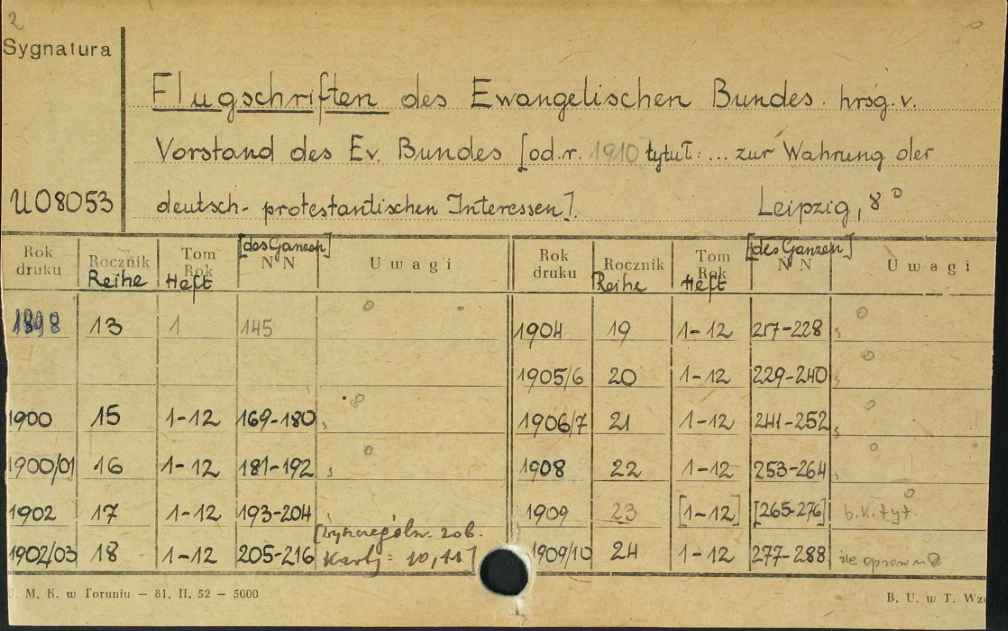 2
Sygnatura
Flugschriften des Ewangelischen Bundes. hrsg. v.
Vorstand des Ev. Bundes [od.r. 1910 tytuł: ... zur Wahrung der
U08053 deutsch-protestantischen Interessen]. Leipzig, 8°
Rok druku Rocznik Reihe Tom Rok Heft [des Ganzen] NN Uwagi Rok druku Rocznik Reihe Tom Rok Heft [des Ganzen] NN Uwagi
1898 13 1 145 1904 19 1-12 217-228
1905/6 20 1-12 229-240
1900 15 1-12 169-180 1906/7 21 1-12 241-252
1900/01 16 1-12 181-192 1908 22 1-12 253-264
1902 17 1-12 193-204 1909 23 [1-12] [265-276] b.k.tyt.
1902/03 18 1-12 205-216 [wyszczególn. zob. karty: 10, 11] 1909/10 24 1-12 277-288 źle
M. K. w Toruniu – 81. II. 52 – 5000 B. U. w T. Wz